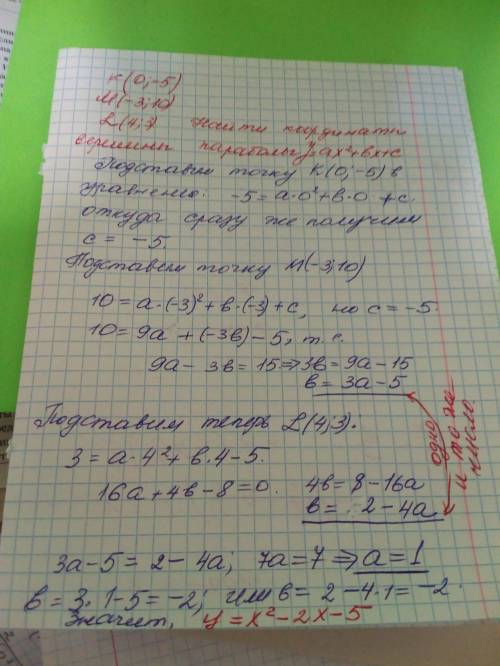 К(0;-5)
М(-3;10)
L(4;3) Найти координаты
вершины параболы y=ax²+bx+c
Подставим точку К(0;-5) в
уравнение: -5=a·0²+b·0+c.
откуда сразу же получим
c= -5.
Подставим точку М(-3;10)
10=a·(-3)²+b·(-3)+c, но c=-5.
10=9a+(-3b)-5, т.е.
9a-3b=15⇒3b=9a-15
b=3a-5
Подставим теперь L(4;3).
3=a·4²+b·4-5.
16a+4b-8=0. 4b=8-16a
b= 2-4a
одно
и то же
число.
3a-5=2-4a; 7a=7⇒a=1
b=3·1-5=-2; или b=2-4·1=-2.
Значит, y=x²-2x-5